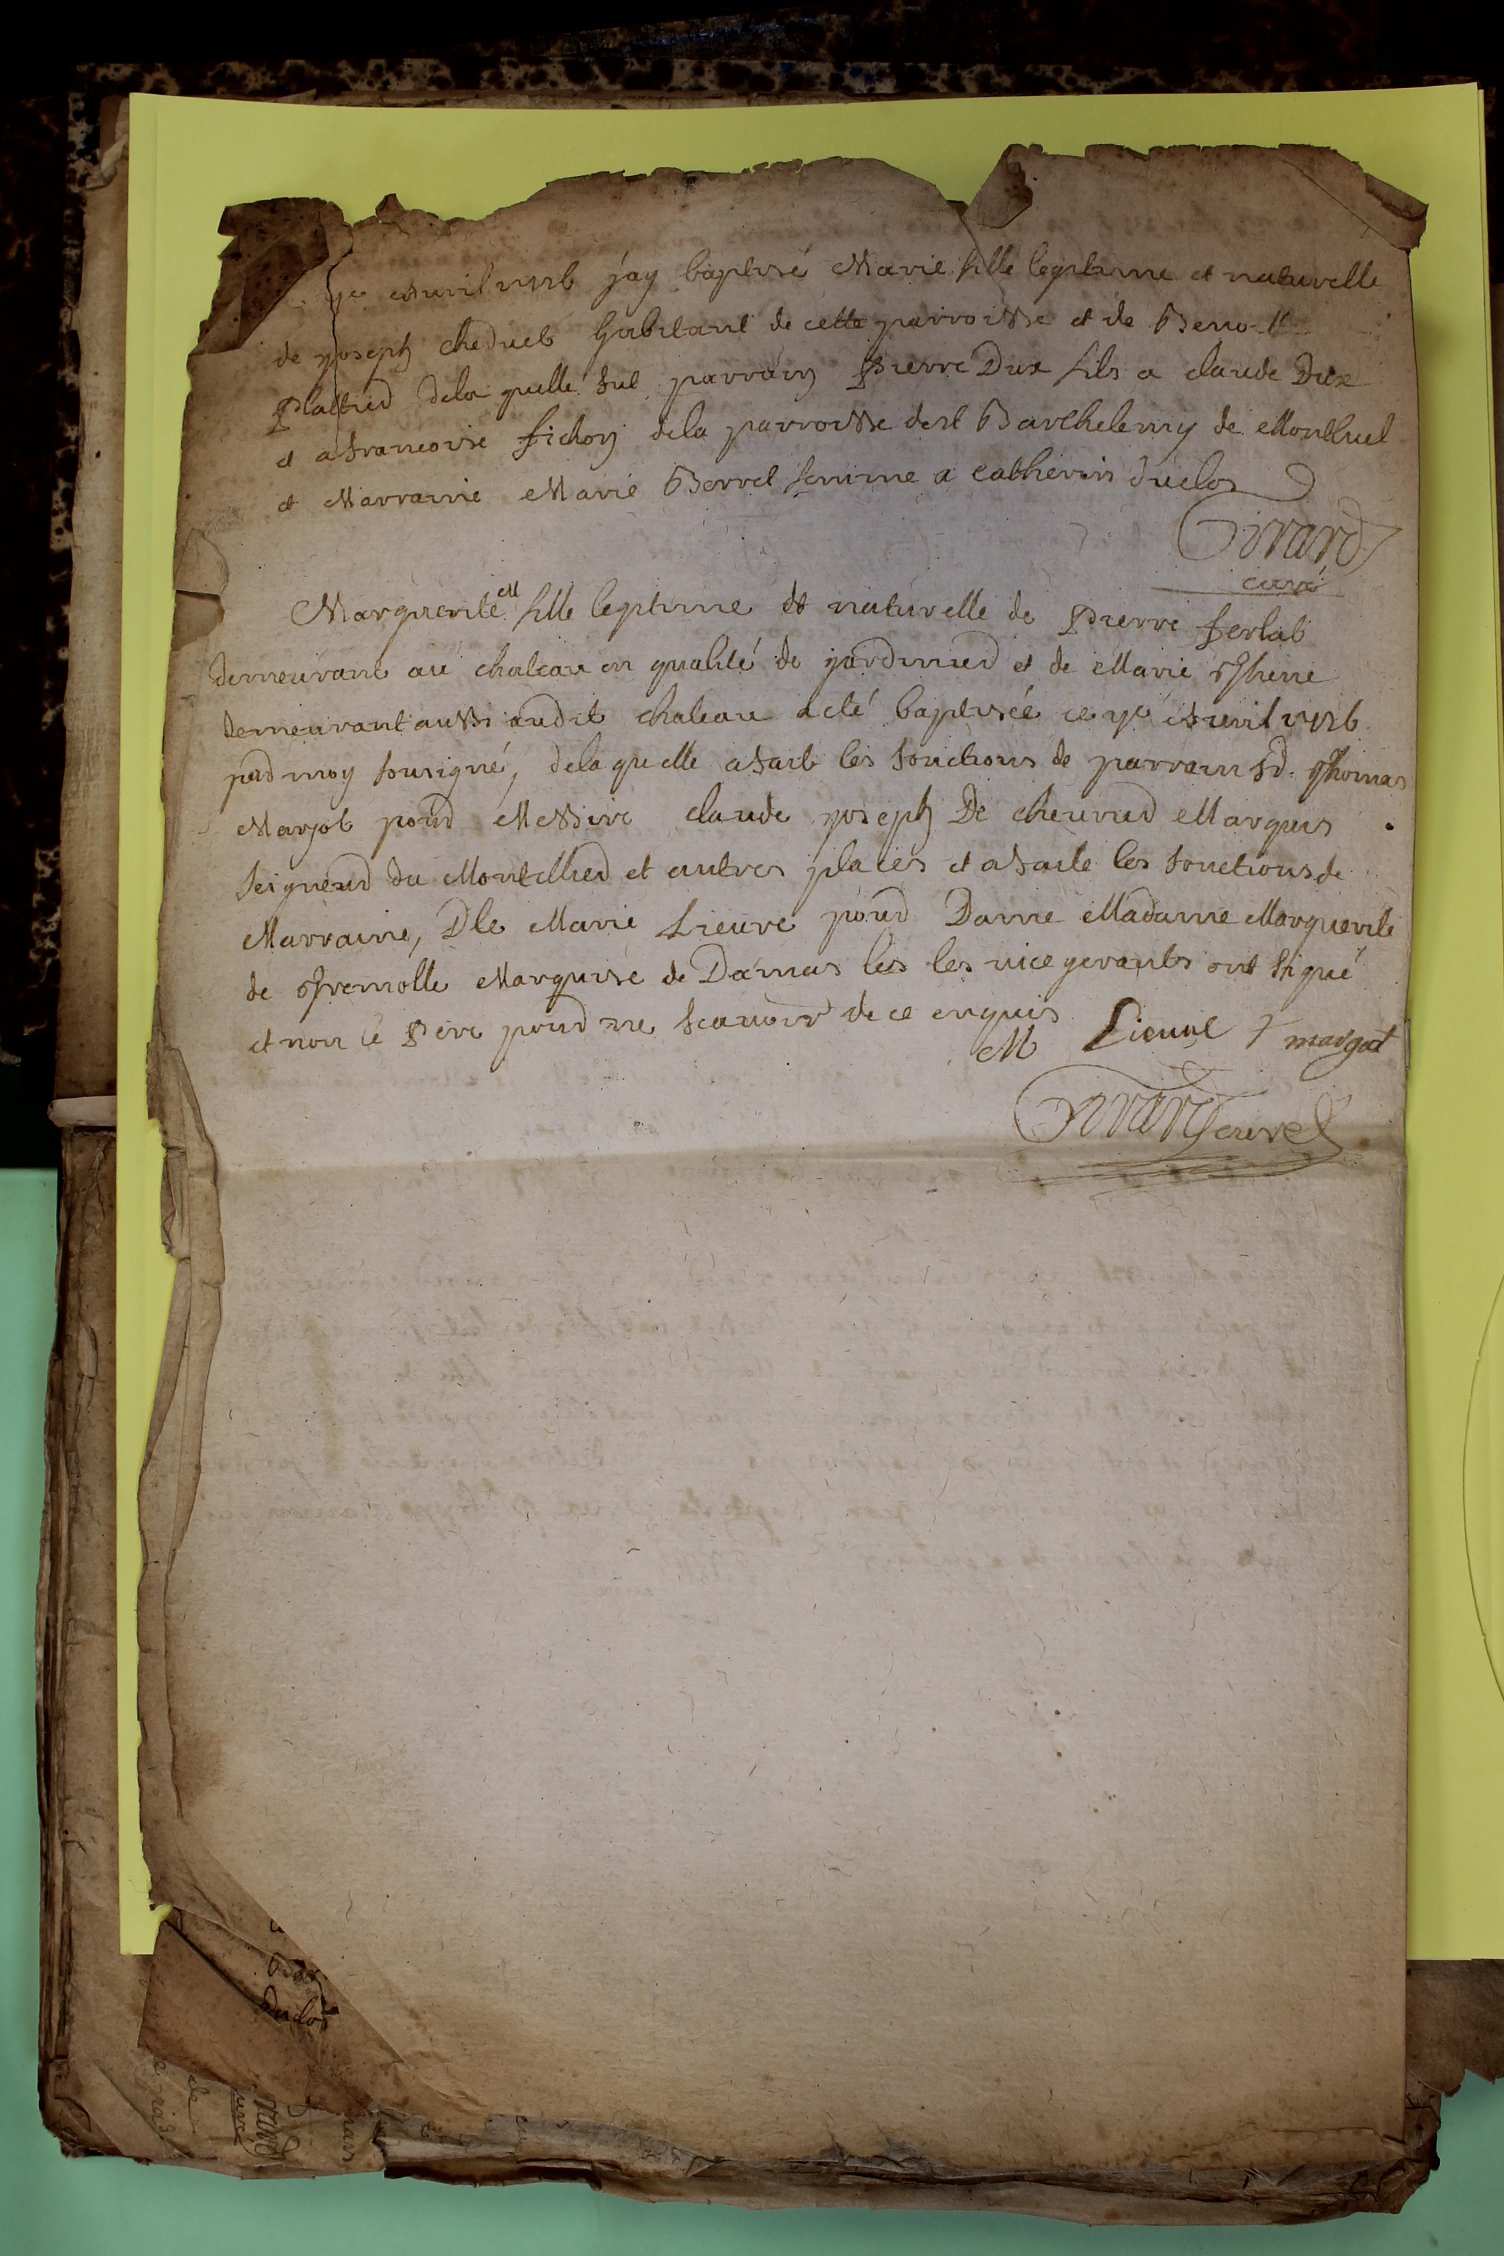 avril 1726 j'ay baptisé Marie fille legitime et naturelle
de joseph cheduet habitant de cette parroisse et de Benoite
Plattier de la quelle fut parrain Pierre Dux fils a claude Dux
et a francoise fichon de la parroisse de st Barthelemy de Montluel
et Marraine Marie Borrel femme a catherin duclos
Girard
curé
Marguerite M fille legitime et naturelle de Pierre ferlat
demeurant au chateau en qualité de jardinier et de Marie
demeurant aussi audit chateau a eté baptisée ce 9e avril 1726
par moy sousigné, de la quelle a fait les fonctions de parrain Sr. Thomas
Marjot pour Messire claude joseph De cheuvrier Marquis
seigneur du Montellier et autres places et a faite les fonctions de
Marraine, Dle Marie Lieure pour Dame Madame Marguerite
de Marquise de Damas les les vice gerants ont signé
et non le Pere pour ne scauoir de ce enquis
M Lieuue T margot
Girard curé
duclos